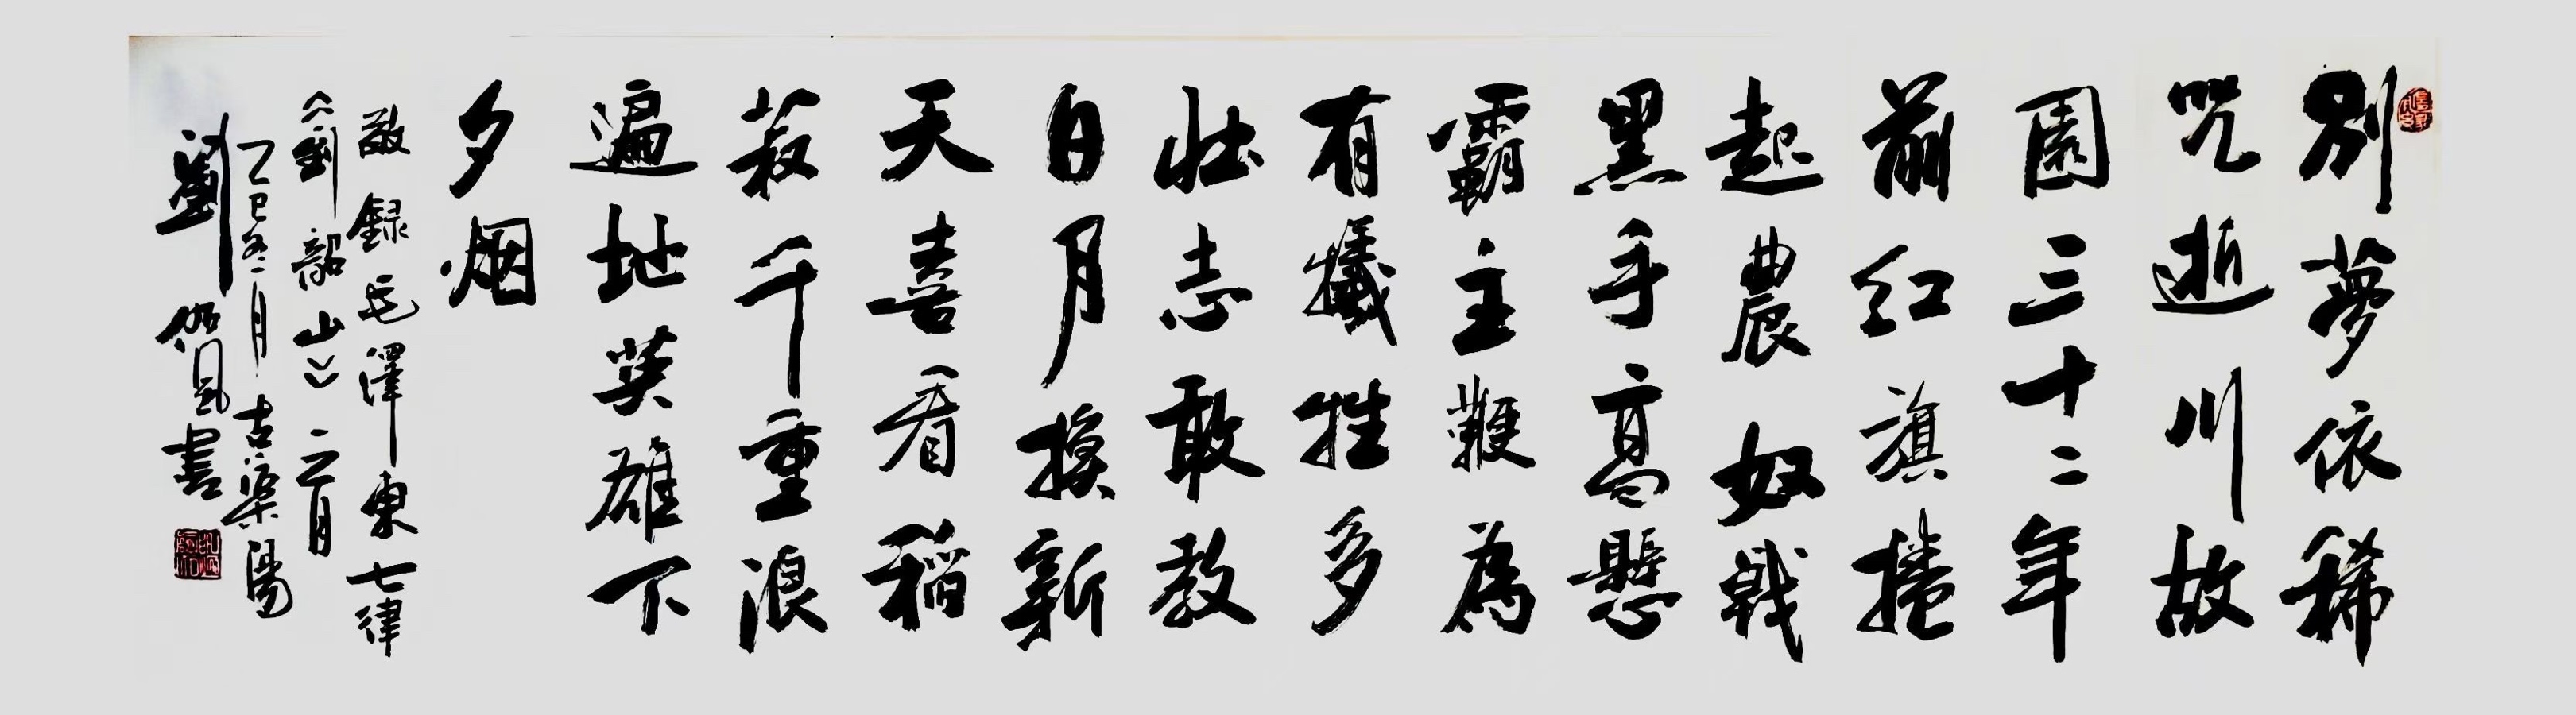 别夢依稀
咒逝川故
園三十二年
前红旗捲
起農奴戟
黑手高懸
霸主鞭為
有犧牲多
壮志敢教
日月换新
天喜看稻
菽千重浪
遍地英雄下
夕烟
敬録毛澤東七律
《到韶山》二月
乙巳冬月古渠陽
劉佩風書